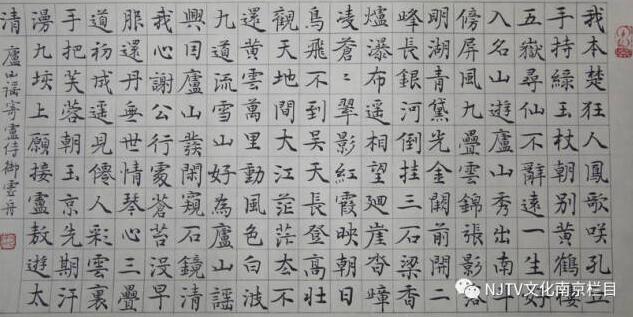 我本楚狂人鳳歌咲孔丘
手持綠玉杖朝别黄鶴樓
五嶽尋仙不辭遠一生好
入名山遊廬山秀出南斗
傍屏風九疊雲錦張影落
明湖青黛光金闕前開二
峰長銀河倒挂三石梁香
爐瀑布遥相望廻崖沓嶂
凌蒼〻翠影紅霞映朝日
鳥飛不到吴天長登高壯
觀天地間大江茫茫去不
還黄雲萬里動風色白波
九道流雪山好為廬山謡
興囙廬山發閑窺石鏡清
我心謝公行處蒼苔没早
服還丹無世情琴心三疊
道初成遥見僊人彩雲裏
手把芙蓉朝玉京先期汗
漫九垓上願接盧敖遊太
清
廬山謡寄盧侍御虚舟
NJTV文化南京栏目